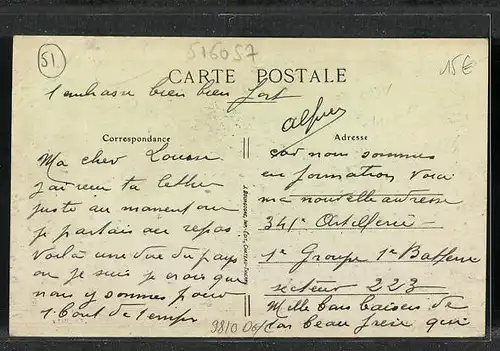 51
516057
15€
CARTE POSTALE
t'embrasse bien bien fort
Alfred
Correspondance
Adresse
Ma cher Louise
j'ai reçu ta lettre
juste au moment ou
je partais au repos
Voilà une vue du pays
ou je suis je crois que
nous y sommes pour
1 bout de temps
J. BOURGOGNE, IMP.-ÉDIT., CHATEAU-THIERRY
car nous sommes
en formation voici
ma nouvelle adresse
341e Artillerie
1e Groupe 1re Batterie
secteur 223
Mille bons baisers de
ton beau frère qui
9810